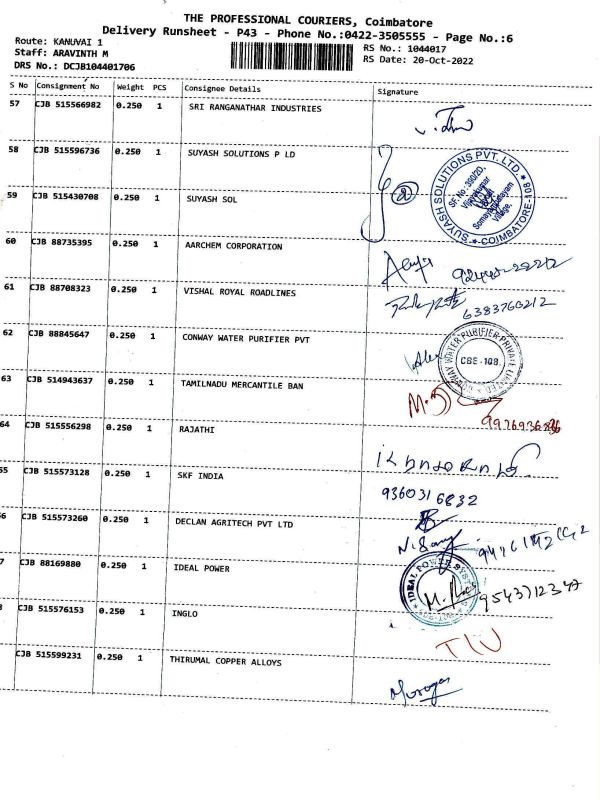 THE PROFESSIONAL COURIERS, Coimbatore
Delivery Runsheet - P43 - Phone No.:0422-3505555 - Page No.:6
Route: KANUVAI 1
RS No.: 1044017
Staff: ARAVINTH M
RS Date: 20-Oct-2022
DRS No.: DCJB104401706
S No Consignment No Weight PCS Consignee Details Signature
57 CJB 515566982 0.250 1 SRI RANGANATHAR INDUSTRIES
58 CJB 515596736 0.250 1 SUYASH SOLUTIONS P LD
SUYASH SOLUTIONS PVT. LTD. * COIMBATORE-108 *
SF. No: 390/2D,
Vijayakumar
Somayampalayam
Village,
59 CJB 515430708 0.250 1 SUYASH SOL
60 CJB 88735395 0.250 1 AARCHEM CORPORATION
61 CJB 88708323 0.250 1 VISHAL ROYAL ROADLINES
6383768212
62 CJB 88845647 0.250 1 CONWAY WATER PURIFIER PVT
CONWAY WATER PURIFIER PRIVATE LIMITED
CBE-108
63 CJB 514943637 0.250 1 TAMILNADU MERCANTILE BAN
64 CJB 515556298 0.250 1 RAJATHI
65 CJB 515573128 0.250 1 SKF INDIA
9360316832
66 CJB 515573260 0.250 1 DECLAN AGRITECH PVT LTD
7 CJB 88169880 0.250 1 IDEAL POWER
IDEAL POWER SYSTEMS
9543712347
8 CJB 515576153 0.250 1 INGLO
TIU
CJB 515599231 0.250 1 THIRUMAL COPPER ALLOYS
Murugan